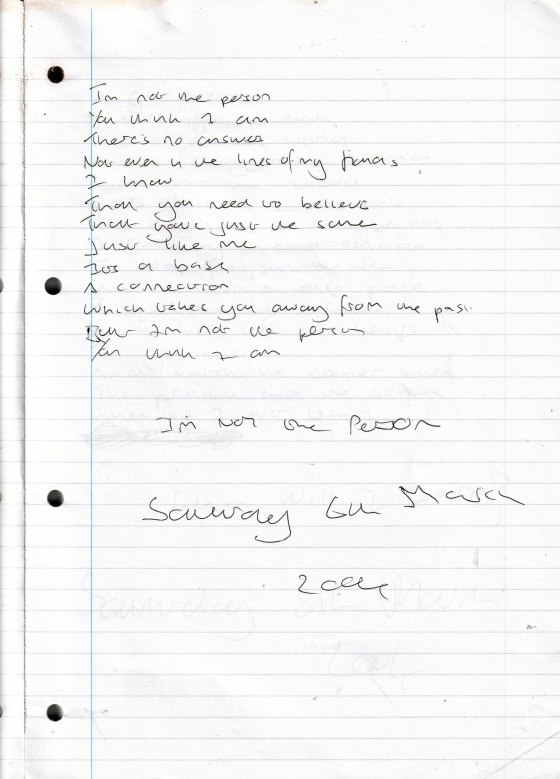 I'm not the person
You think I am
There's no answer
Not even in the lines of my
I know
That you need to believe
That you're just the same
Just like me
It's a
A connection
Which takes you away from the past
But I'm not the person
You think I am
I'm Not the Person
Saturday 6th March
2004